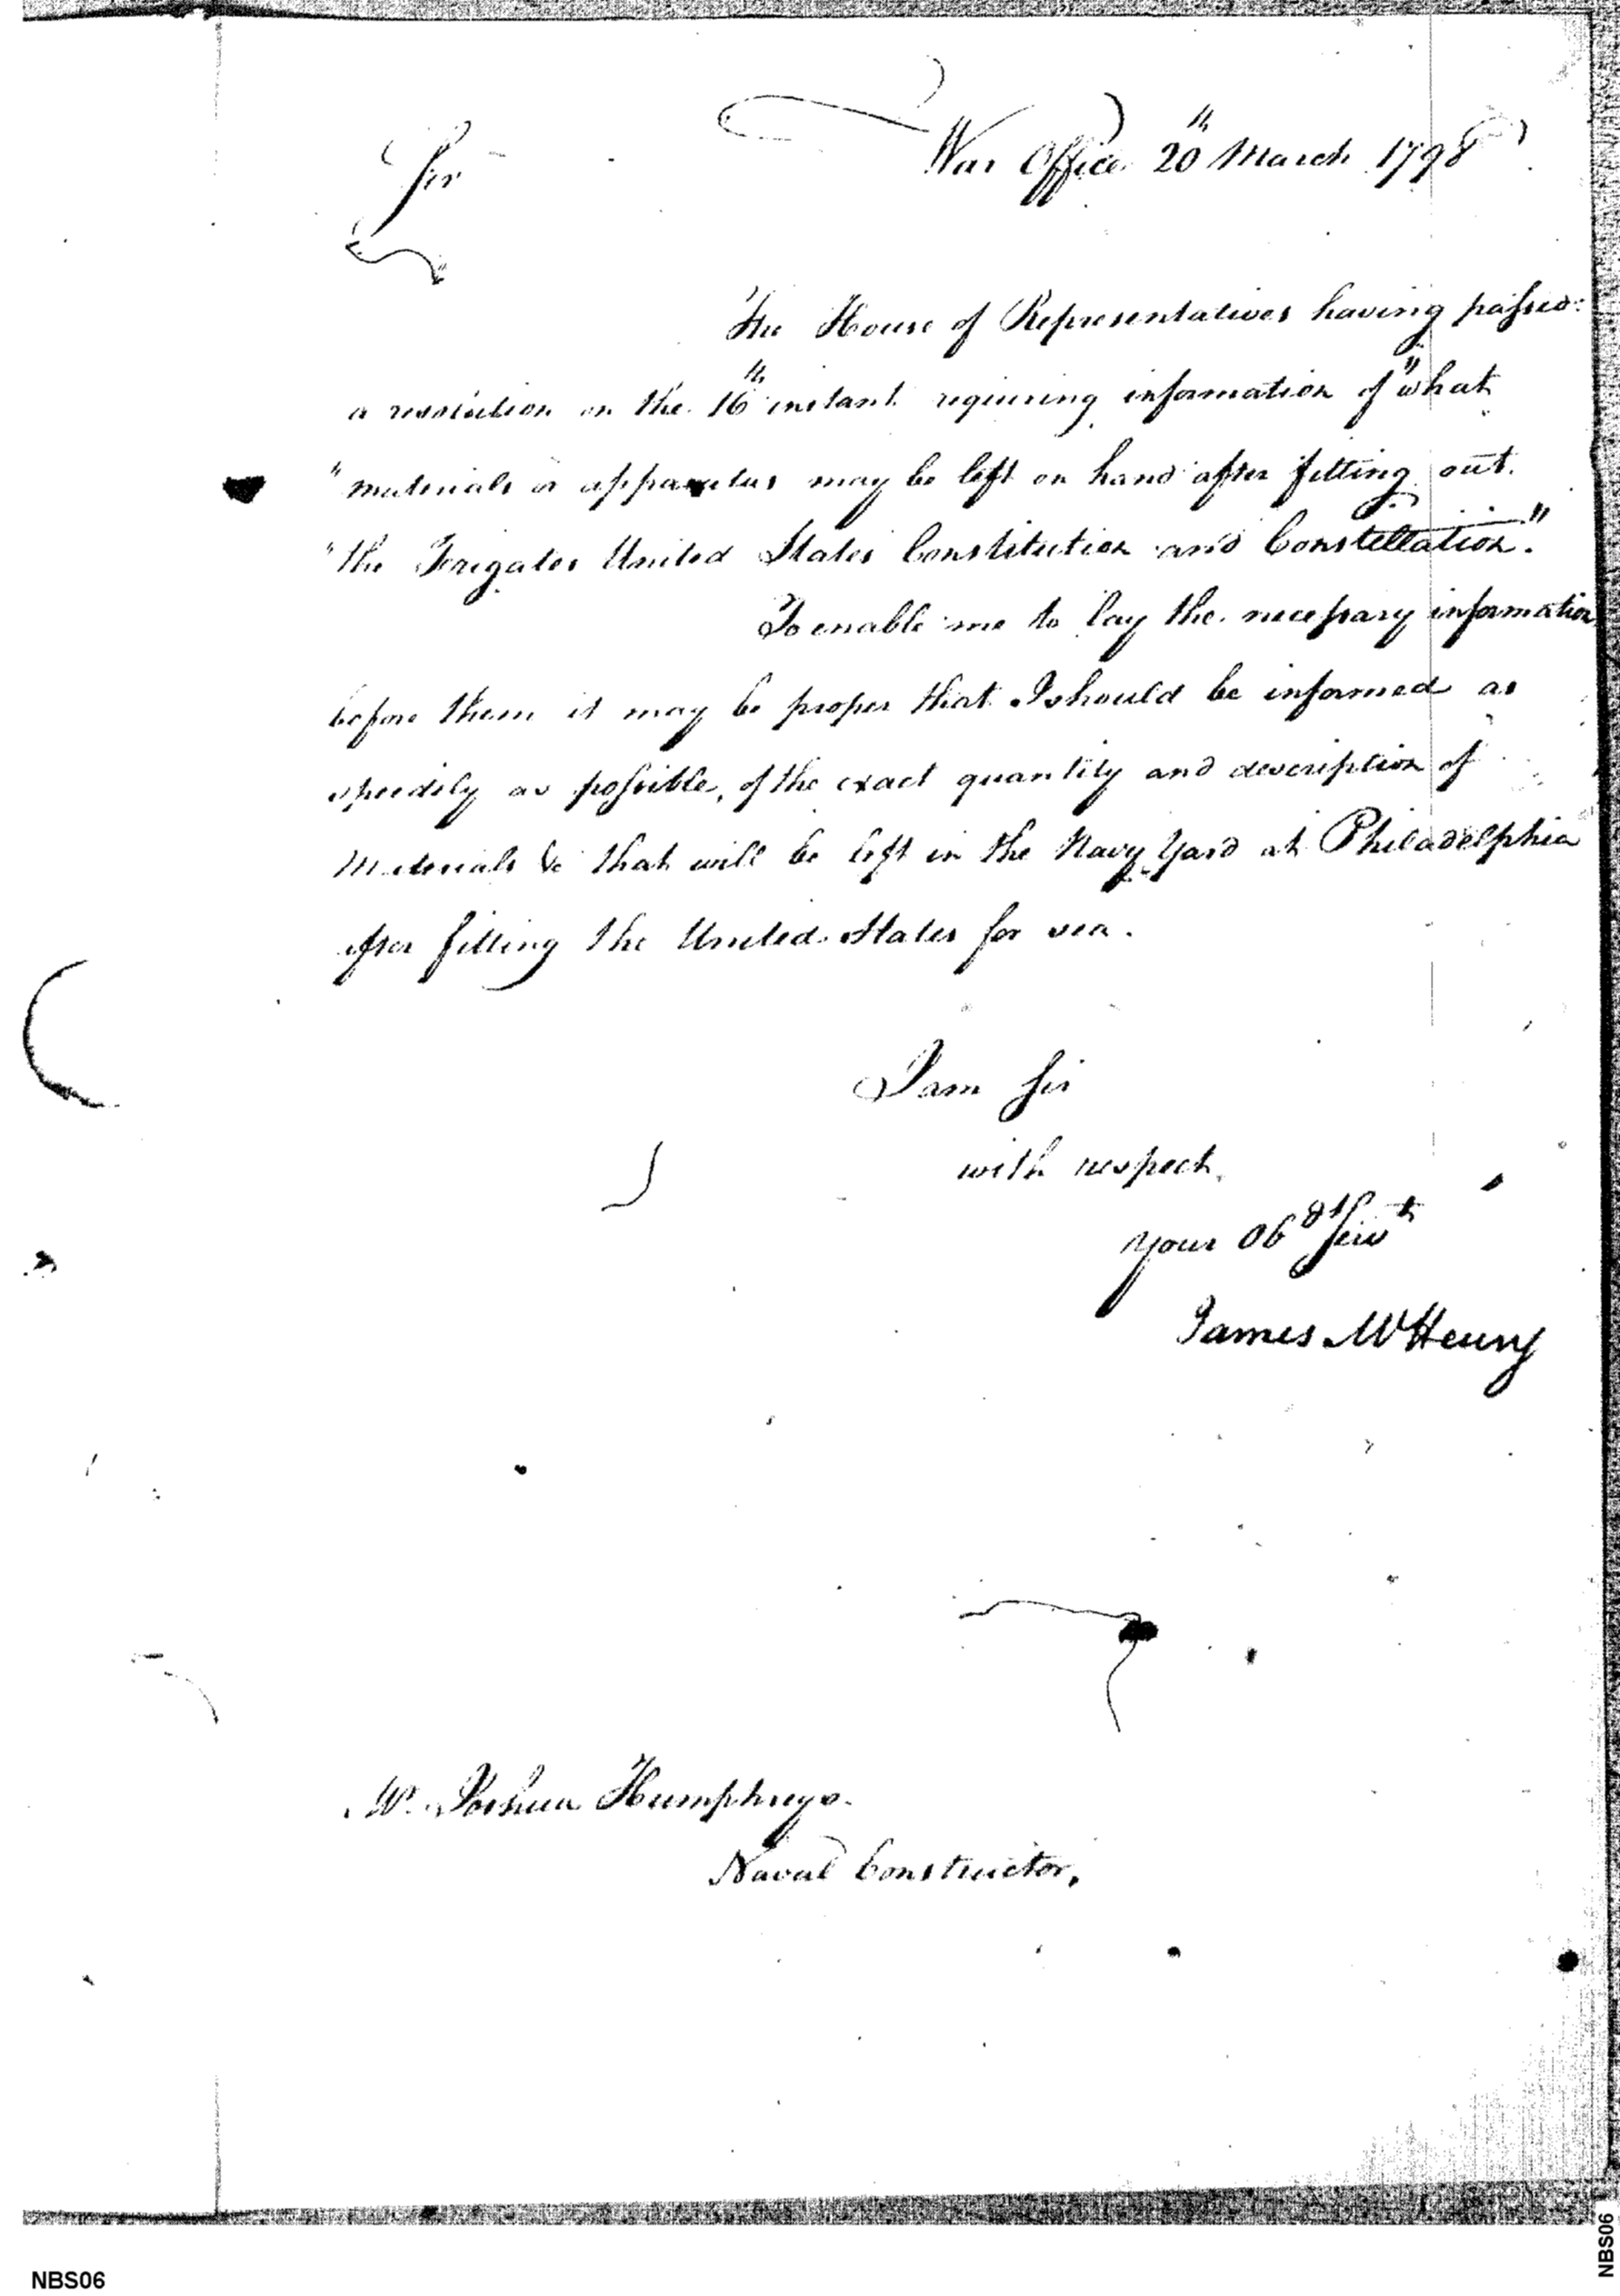 War Office 20th March 1798
Sir
The House of Representatives having passed
a resolution on the 16th instant requiring information of "what
"materials or apparatus may be left on hand after fitting out
"the Frigates United States Constitution and Constellation."
To enable me to lay the necessary information
before them it may be proper that I should be informed as
speedily as possible, of the exact quantity and description of
Materials &c that will be left in the Navy Yard at Philadelphia
after fitting the United States for sea.
I am Sir
with respect
your Obdt Servt
James McHenry
Mr. Joshua Humphreys.
Naval Constructor,
NBS06
NBS06